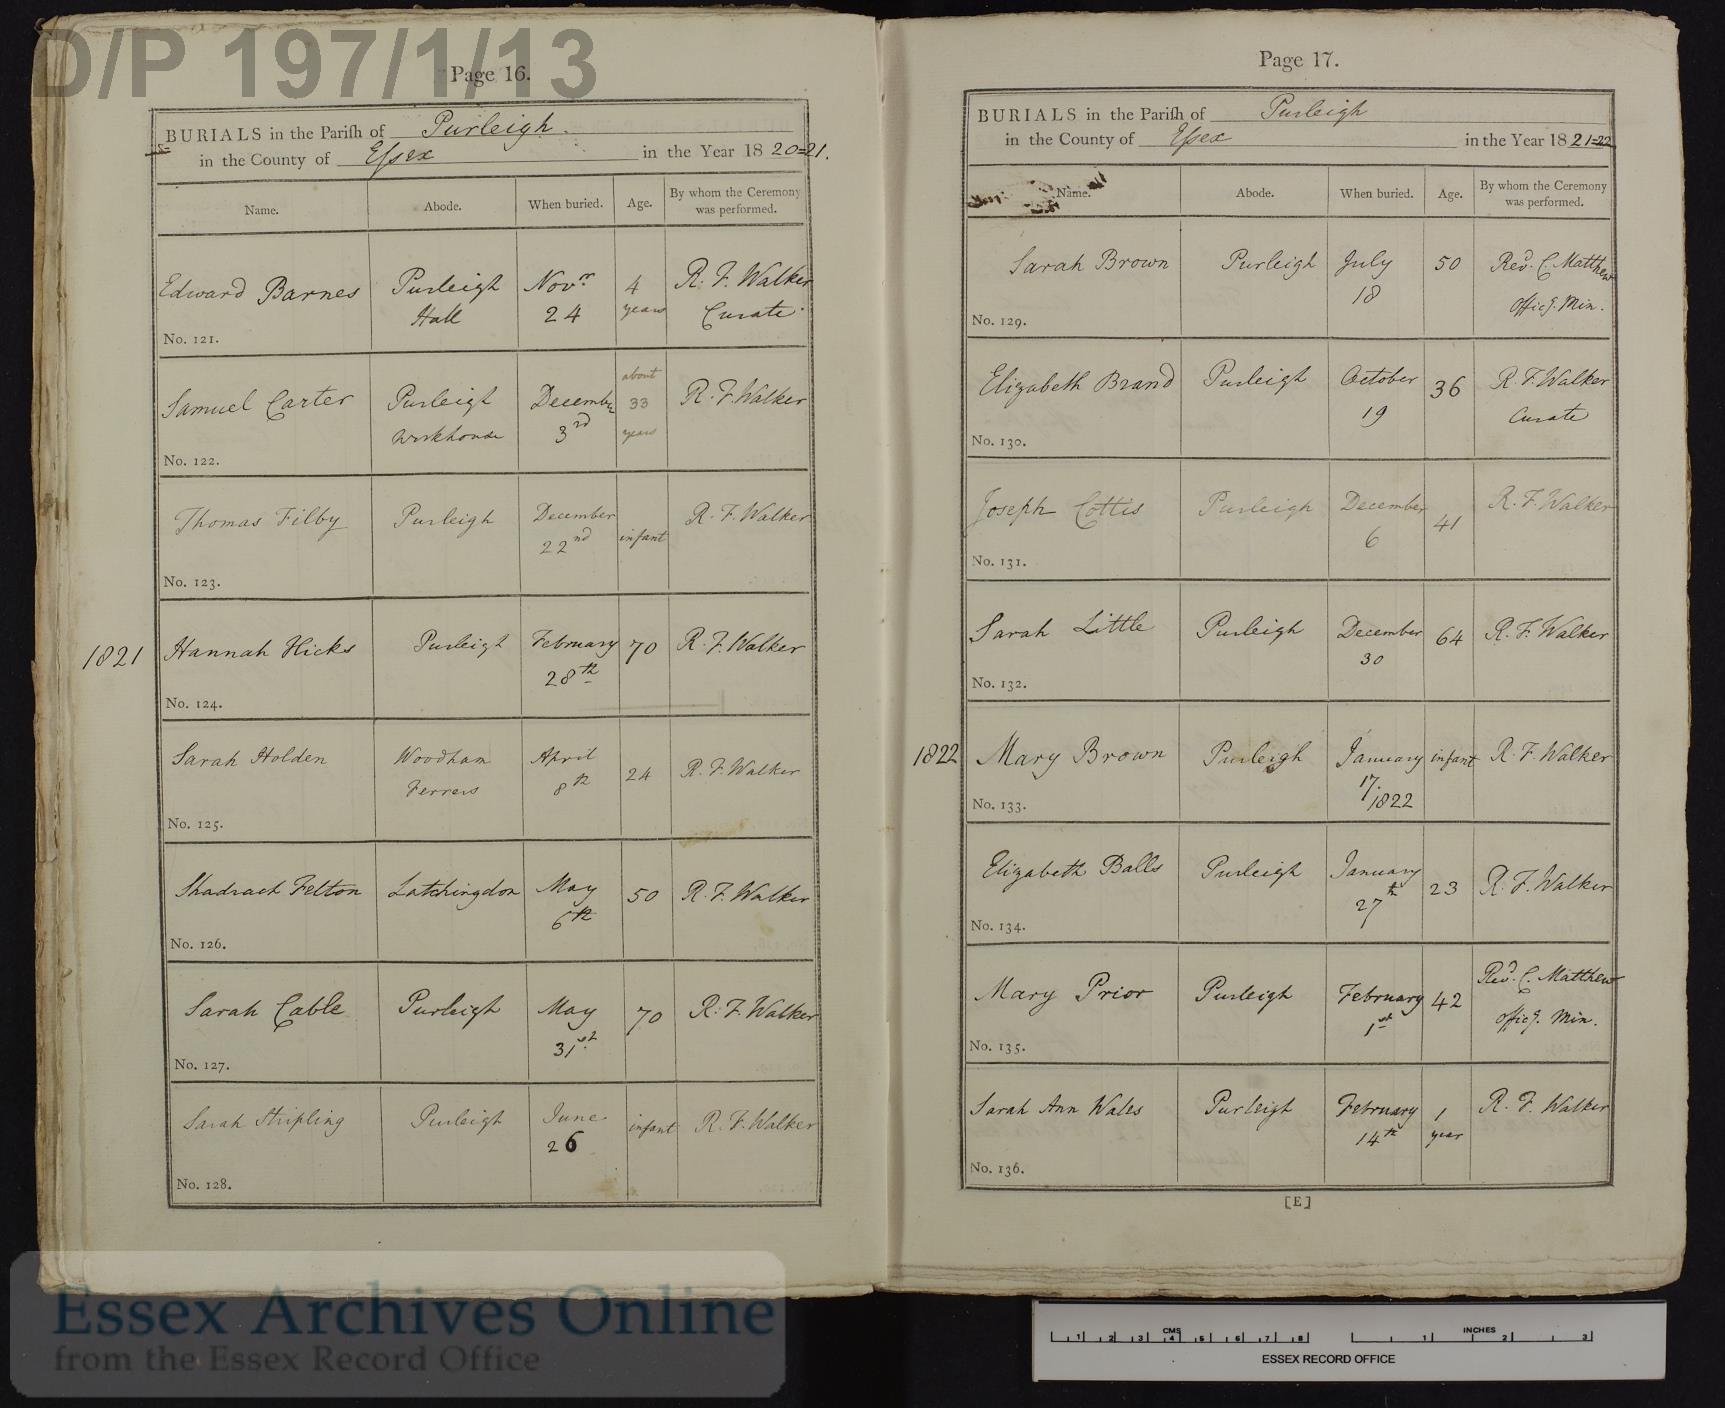 D/P 197/1/13
Page 16.
BURIALS in the Parish of Purleigh.
in the County of Essex in the Year 18 20=21.
Name. Abode. When buried. Age. By whom the Ceremony was performed.
Edward Barnes Purleigh Hall Novr 24 4 years R. F. Walker Curate.
No. 121.
Samuel Carter Purleigh workhouse December 3rd about 33 years R. F. Walker
No. 122.
Thomas Filby Purleigh December 22nd infant R. F. Walker
No. 123.
1821 Hannah Hicks Purleigh February 28th 70 R. F. Walker
No. 124.
Sarah Holden Woodham Ferrers April 8th 24 R. F. Walker
No. 125.
Shadrach Felton Latchingdon May 6th 50 R. F. Walker
No. 126.
Sarah Cable Purleigh May 31st 70 R. F. Walker
No. 127.
Sarah Stripling Purleigh June 26 infant R. F. Walker
No. 128.
Page 17.
BURIALS in the Parish of Purleigh
in the County of Essex in the Year 18 21=22
Name. Abode. When buried. Age. By whom the Ceremony was performed.
Sarah Brown Purleigh July 18 50 Revd. C. Matthew Officg. Min.
No. 129.
Elizabeth Brand Purleigh October 19 36 R. F. Walker Curate
No. 130.
Joseph Cottis Purleigh December 6 41 R. F. Walker
No. 131.
Sarah Little Purleigh December 30 64 R. F. Walker
No. 132.
1822 Mary Brown Purleigh January 17. 1822 infant R. F. Walker
No. 133.
Elizabeth Balls Purleigh January 27th 23 R. F. Walker
No. 134.
Mary Prior Purleigh February 1st 42 Revd. C. Matthew Officg. Min.
No. 135.
Sarah Ann Wales Purleigh February 14th 1 year R. F. Walker
No. 136.
[E]
Essex Archives Online
from the Essex Record Office
CMS
1 2 3 4 5 6 7 8
INCHES
1 2 3
ESSEX RECORD OFFICE